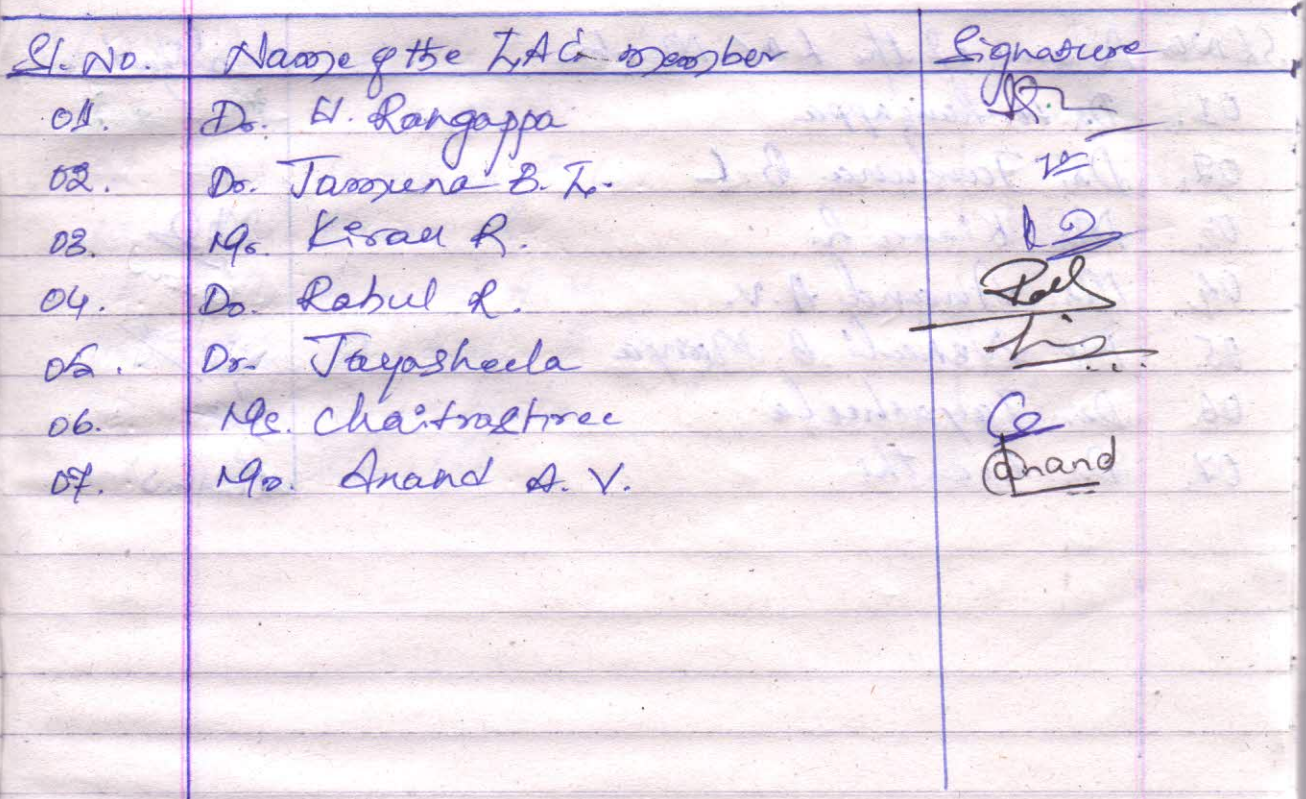 Sl. No. Name of the LAC member Signature
01. Dr. H. Rangappa
02. Dr. Jamuna B. L.
03. Mr. Kiran R.
04. Dr. Rahul R.
05. Dr. Jayasheela
06. Ms. Chaitrashree
07. Mr. Anand A. V. Anand